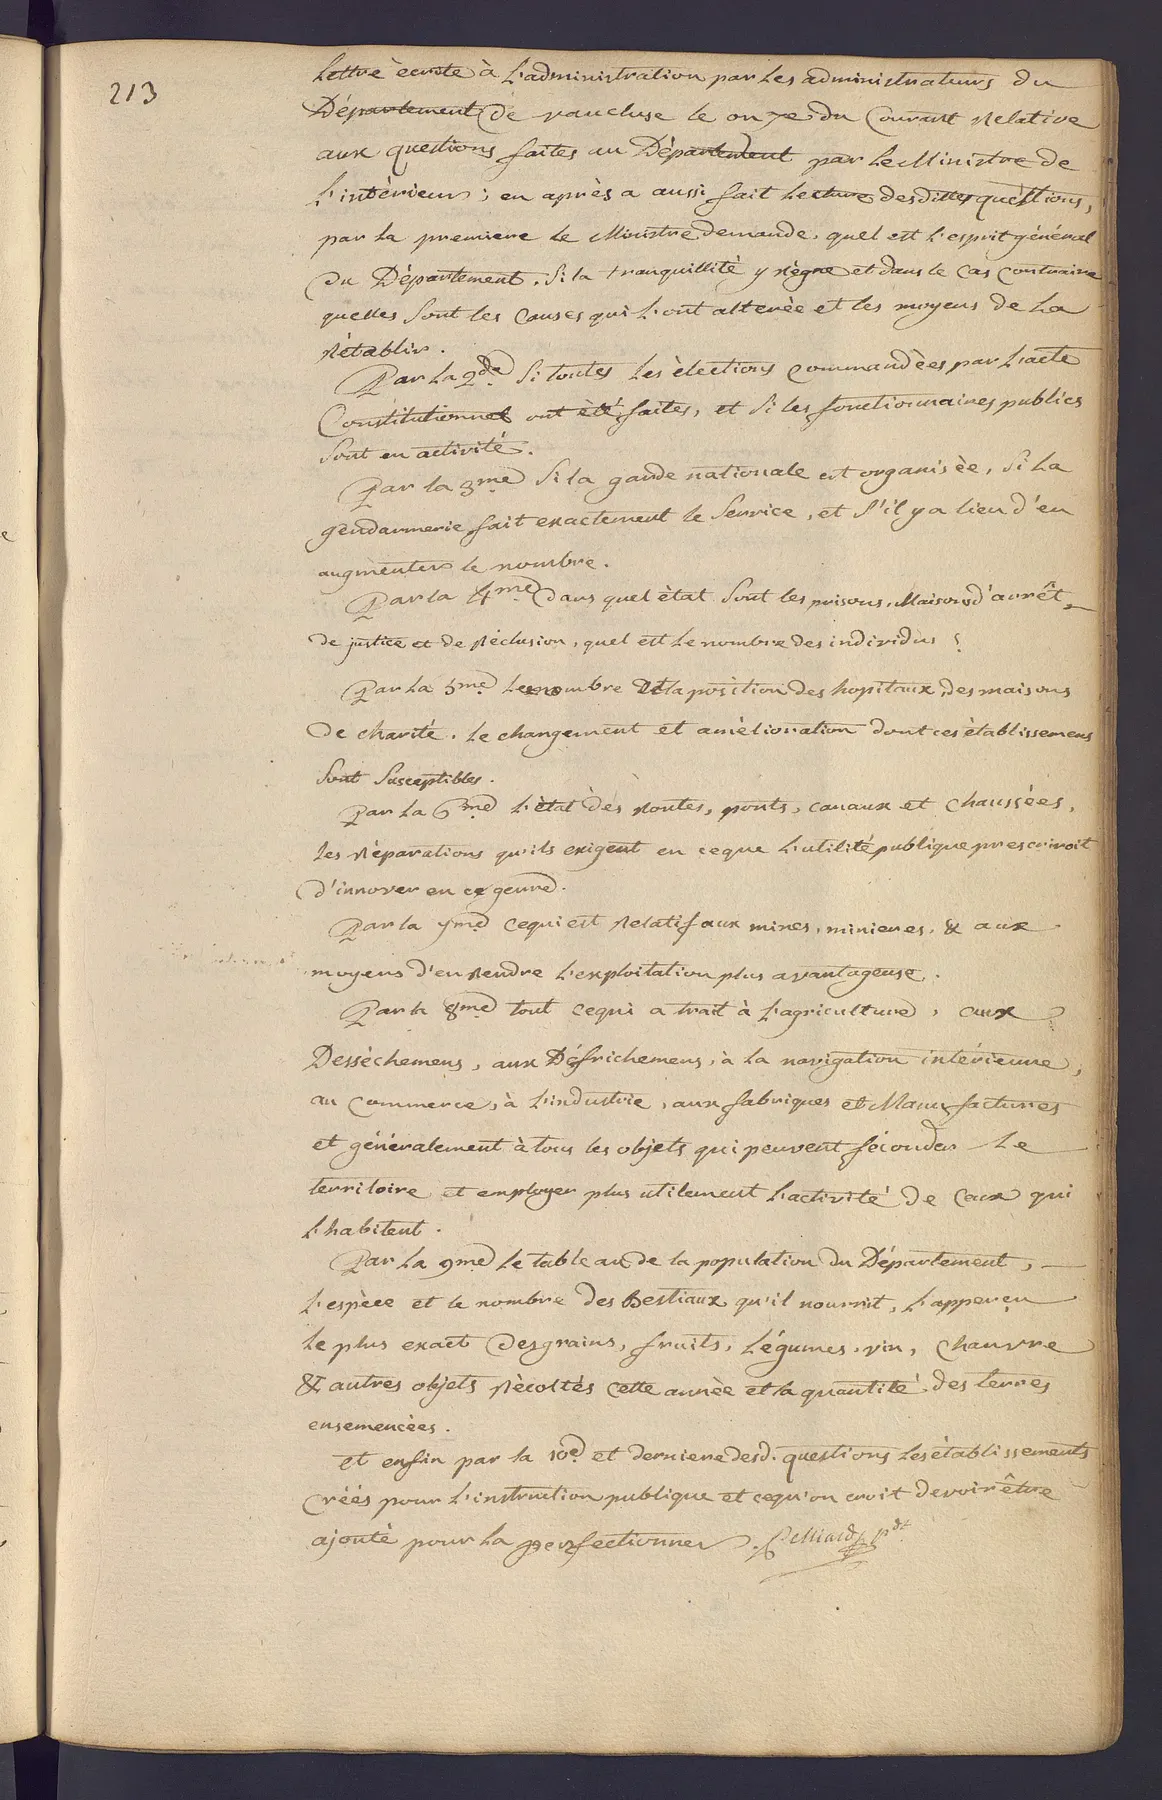 213
Lettre ècrite à L'administration par Les administrateurs du
Département de vaucluse le onze du Courant Relative
aux questions faites au Département par Le Ministre de
L'intérieur; en après a aussi fait Lecture desdittes quèstions,
par La premiere le Ministre demande, quel est L'esprit général
du Département. Si la tranquillité y règne et dans le Cas Contraire
quelles Sont les Causes qui L'ont alterèe et les moyens de La
Rétablir.
Par La 2de Si toutes Les èlections Commandèes par L'acte
Constitutionnel ont èté faites, et Si les fonctionnaires publics
Sont en activité.
Par la 3me Si la garde nationale est organisèe, Si La
gendarmerie fait exactement le Service, et S'il y a lieu d'en
augmenter le nombre.
Par la 4me dans quel ètat Sont les prisons, Maisons d'arrêt
de justice et de Réclusion, quel est Le nombre des individus ?
Par La 5me Le nombre et la position des hopitaux, des maisons
de charité. Le changement et amèlioration dont ces ètablissemens
Sont Susceptibles.
Par La 6me L'ètat dès Routes, ponts, canaux et chaussèes,
Les Réparations qu'ils exigent en ceque L'utilité publique prescriroit
d'innover en ce genre.
Par la 7me cequi est Relatif aux mines, minieres, & aux
moyens d'en Rendre L'exploitation plus avantageuse.
Par la 8me tout cequi a trait à L'agriculture, aux
Dessèchemens, aux Défrichemens, à la navigation intérieure,
au Commerce, à L'industrie, aux fabriques et Manufactures
et généralement à tous les objets qui peuvent féconder Le
territoire et employer plus utilement L'activité de Ceux qui
L'habitent.
Par La 9me Le tableau de la population du Département,
L'espèce et le nombre des Bestiaux qu'il nourrit, L'apperçu
Le plus exact des grains, fruits, Légumes, vin, Chanvre
& autres objets Rècoltés Cette annèe et la quantité des terres
ensemencées.
et enfin par la 10e et derniere desd. questions Les établissements
Créés pour L'instruction publique et cequ'on croit devoir être
ajouté pour La perfectionner.